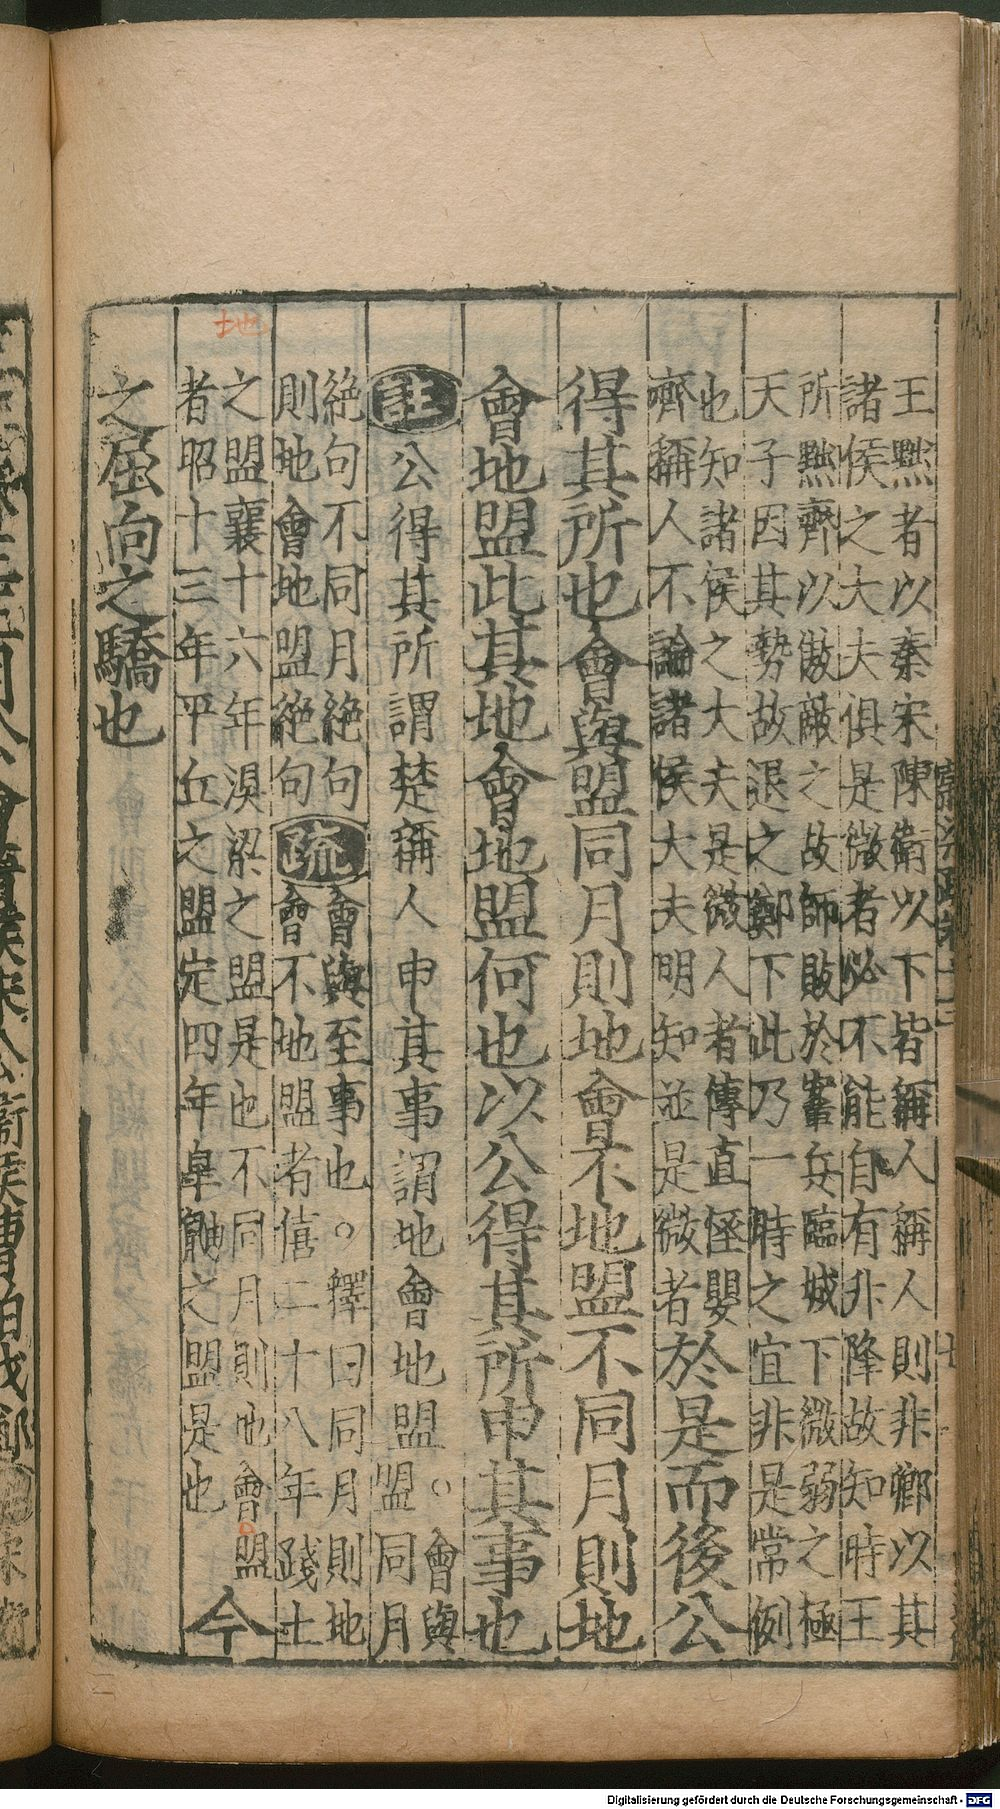 王黜者以秦宋陳衛以下皆稱人稱人則非卿以其
諸侯之大夫俱是微者必不能自有升降故知時王
所黜齊以傲敵之故師敗於鞌兵臨城下微弱之極
天子因其勢故退之鄭下此乃一時之宜非是常例
也知諸侯之大夫是微人者傳直怪嬰
齊稱人不論諸侯大夫明知並是微者
於是而後公
得其所也會與盟同月則地會不地盟不同月則地
會地盟此其地會地盟何也以公得其所申其事也
註 公得其所謂楚稱人申其事謂地會地盟。會與
盟同月
絶句不同月絶句
則地會地盟絶句
疏 會與至事也。釋曰同月則地
會不地盟者僖二十八年踐土
之盟襄十六年溴梁之盟是也不同月則地會盟
者昭十三年平丘之盟定四年皐鼬之盟是也
今
之屈向之驕也
地
Digitalisierung gefördert durch die Deutsche Forschungsgemeinschaft - DFG